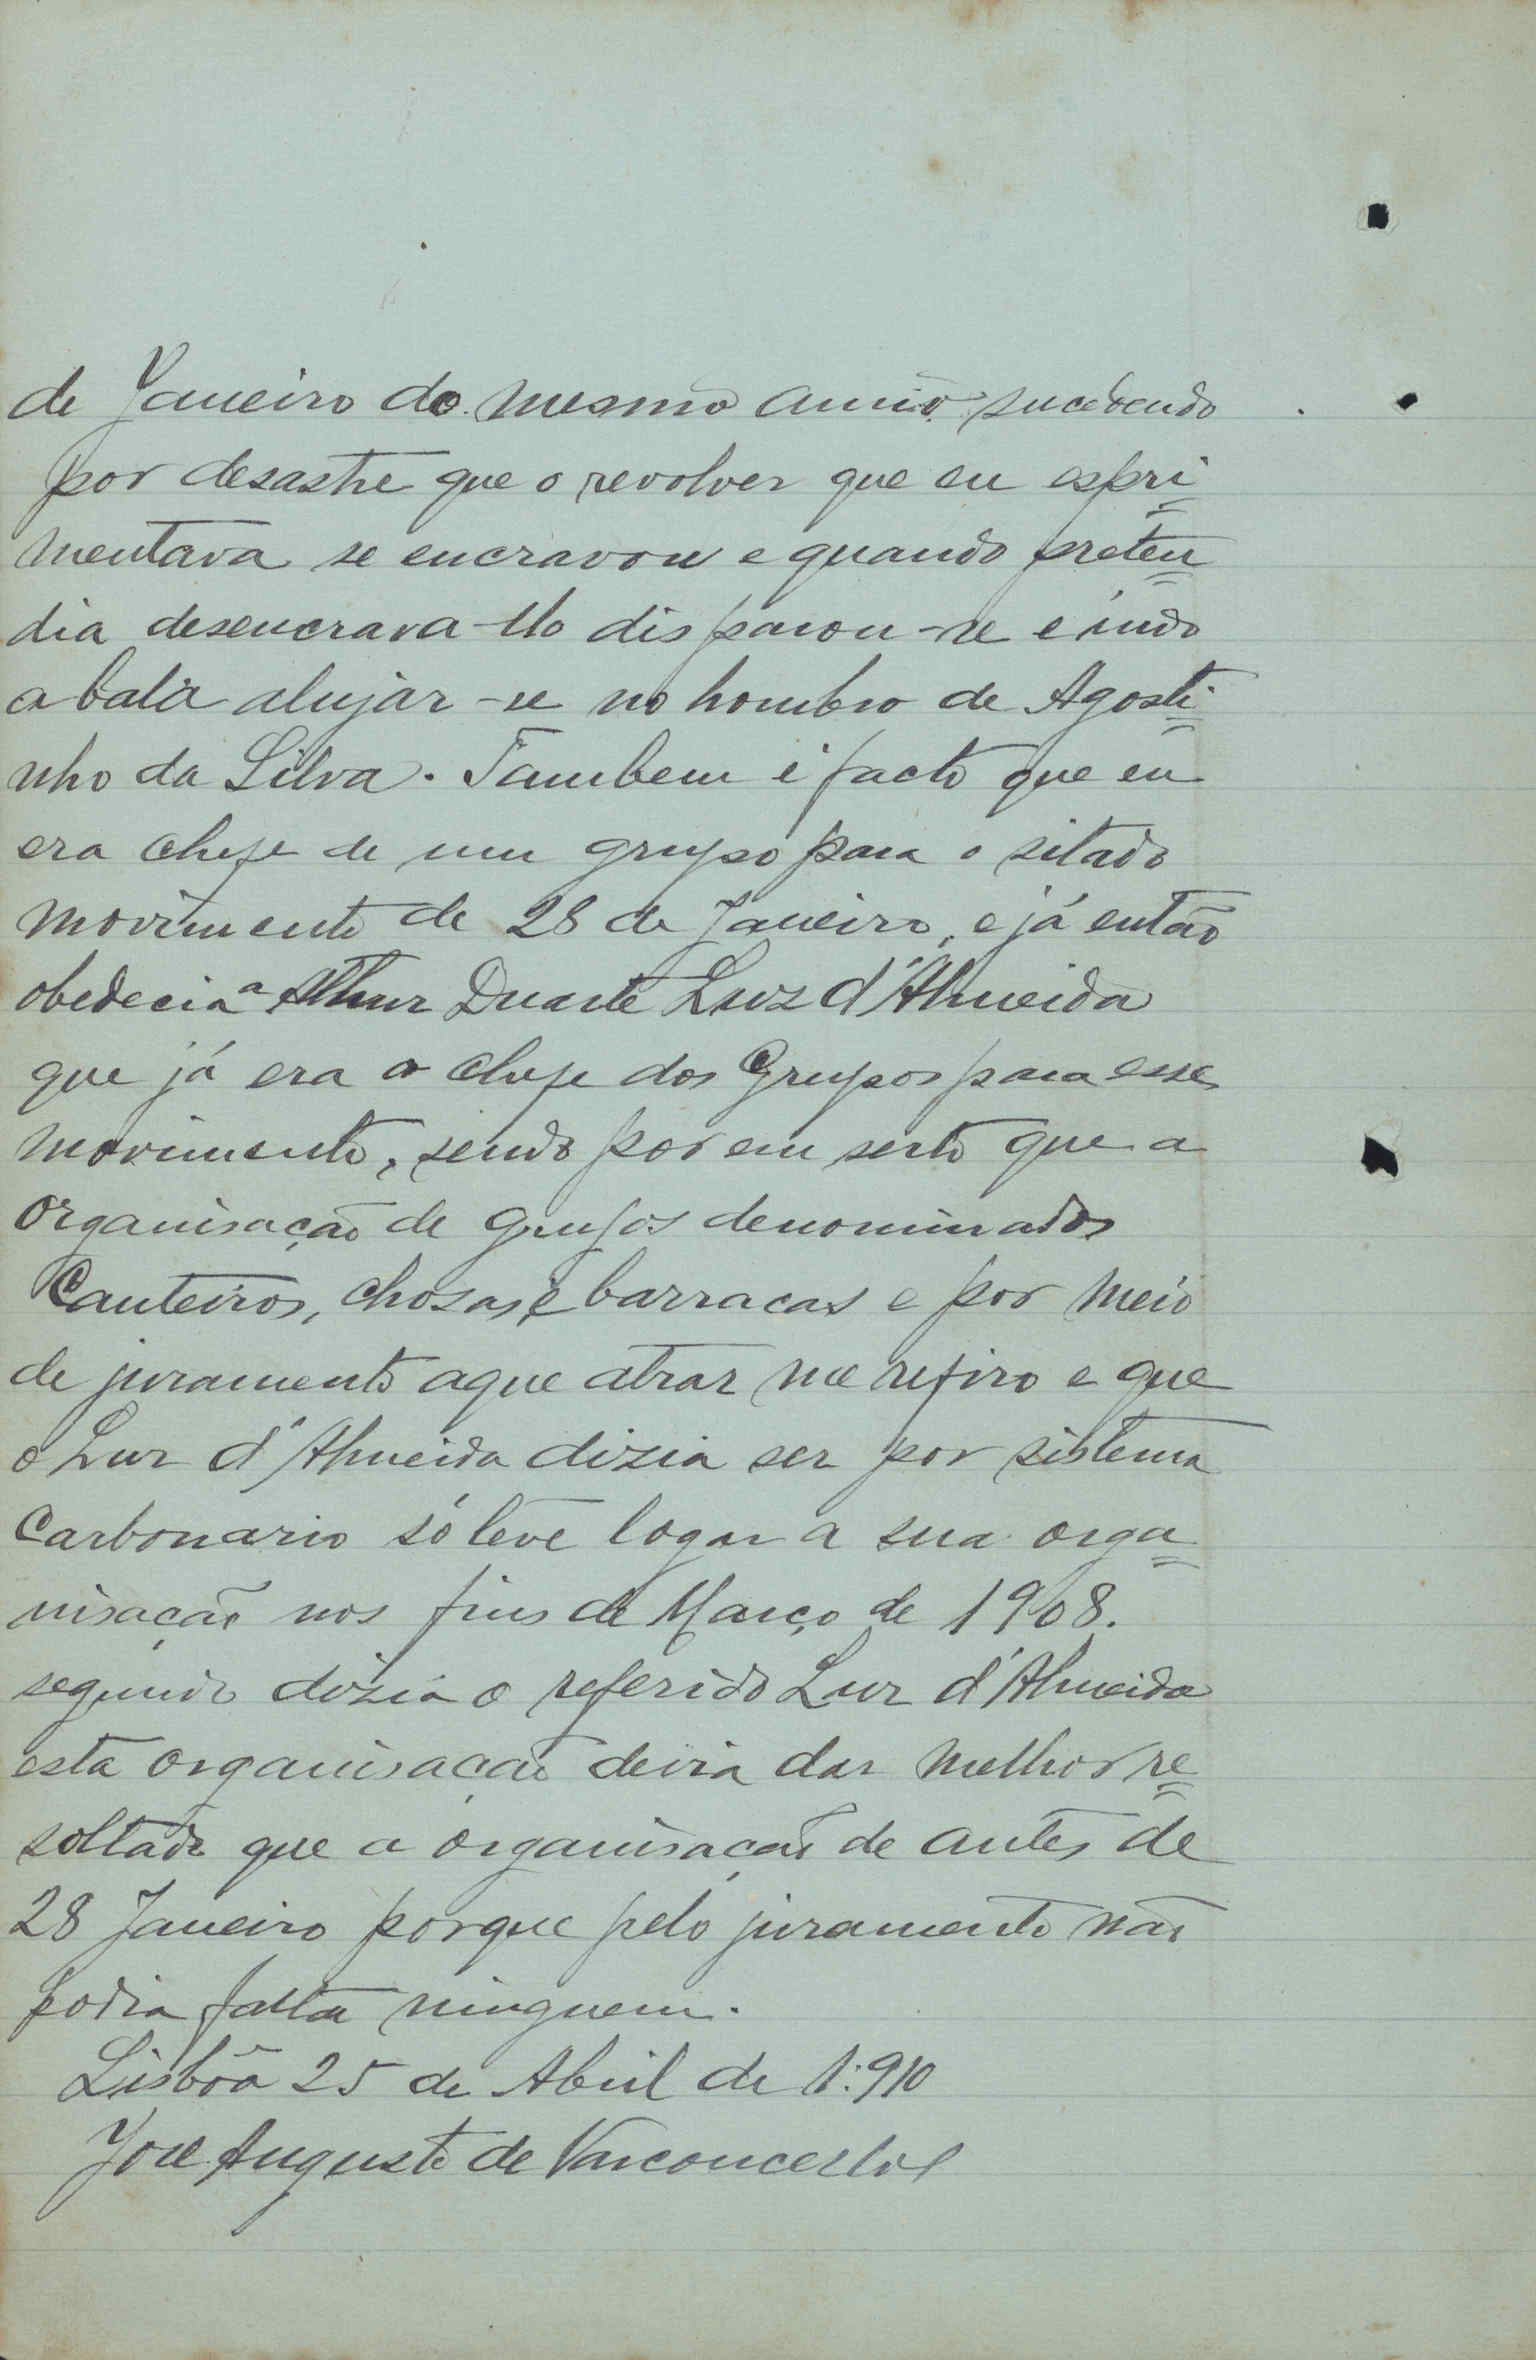 de Janeiro do mesmo anno sucedendo
por desastre que o revolver que eu espri=
mentava se encravou e quando preten=
dia desencrava-llo disparou-se e indo
a bala alujar-se no hombro de Agosti=
nho da Silva. Tambem é facto que eu
era chefe de um grupo para o sitado
movimento de 28 de Janeiro, e já então
obedecia a Arthur Duarte Luz d'Almeida
que já era o chefe dos Grupos para esse
movimento, sendo porem serto que a
organisação de grupos denominados
Canteiros, chosas, e barracas e por meio
de juramento aque atraz me refiro e que
o Luz d'Almeida dizia ser por sistema
Carbonario só teve logar a sua orga=
nisação nos fins de Março de 1908.
segundo dizia o referido Luz d'Almeida
esta organisação devia dar melhor re=
soltado que a organisação de antes de
28 Janeiro porque pelo juramento não
podia falta ninguem.
Lisbôa 25 de Abril de 1:910
José Augusto de Vasconcellos